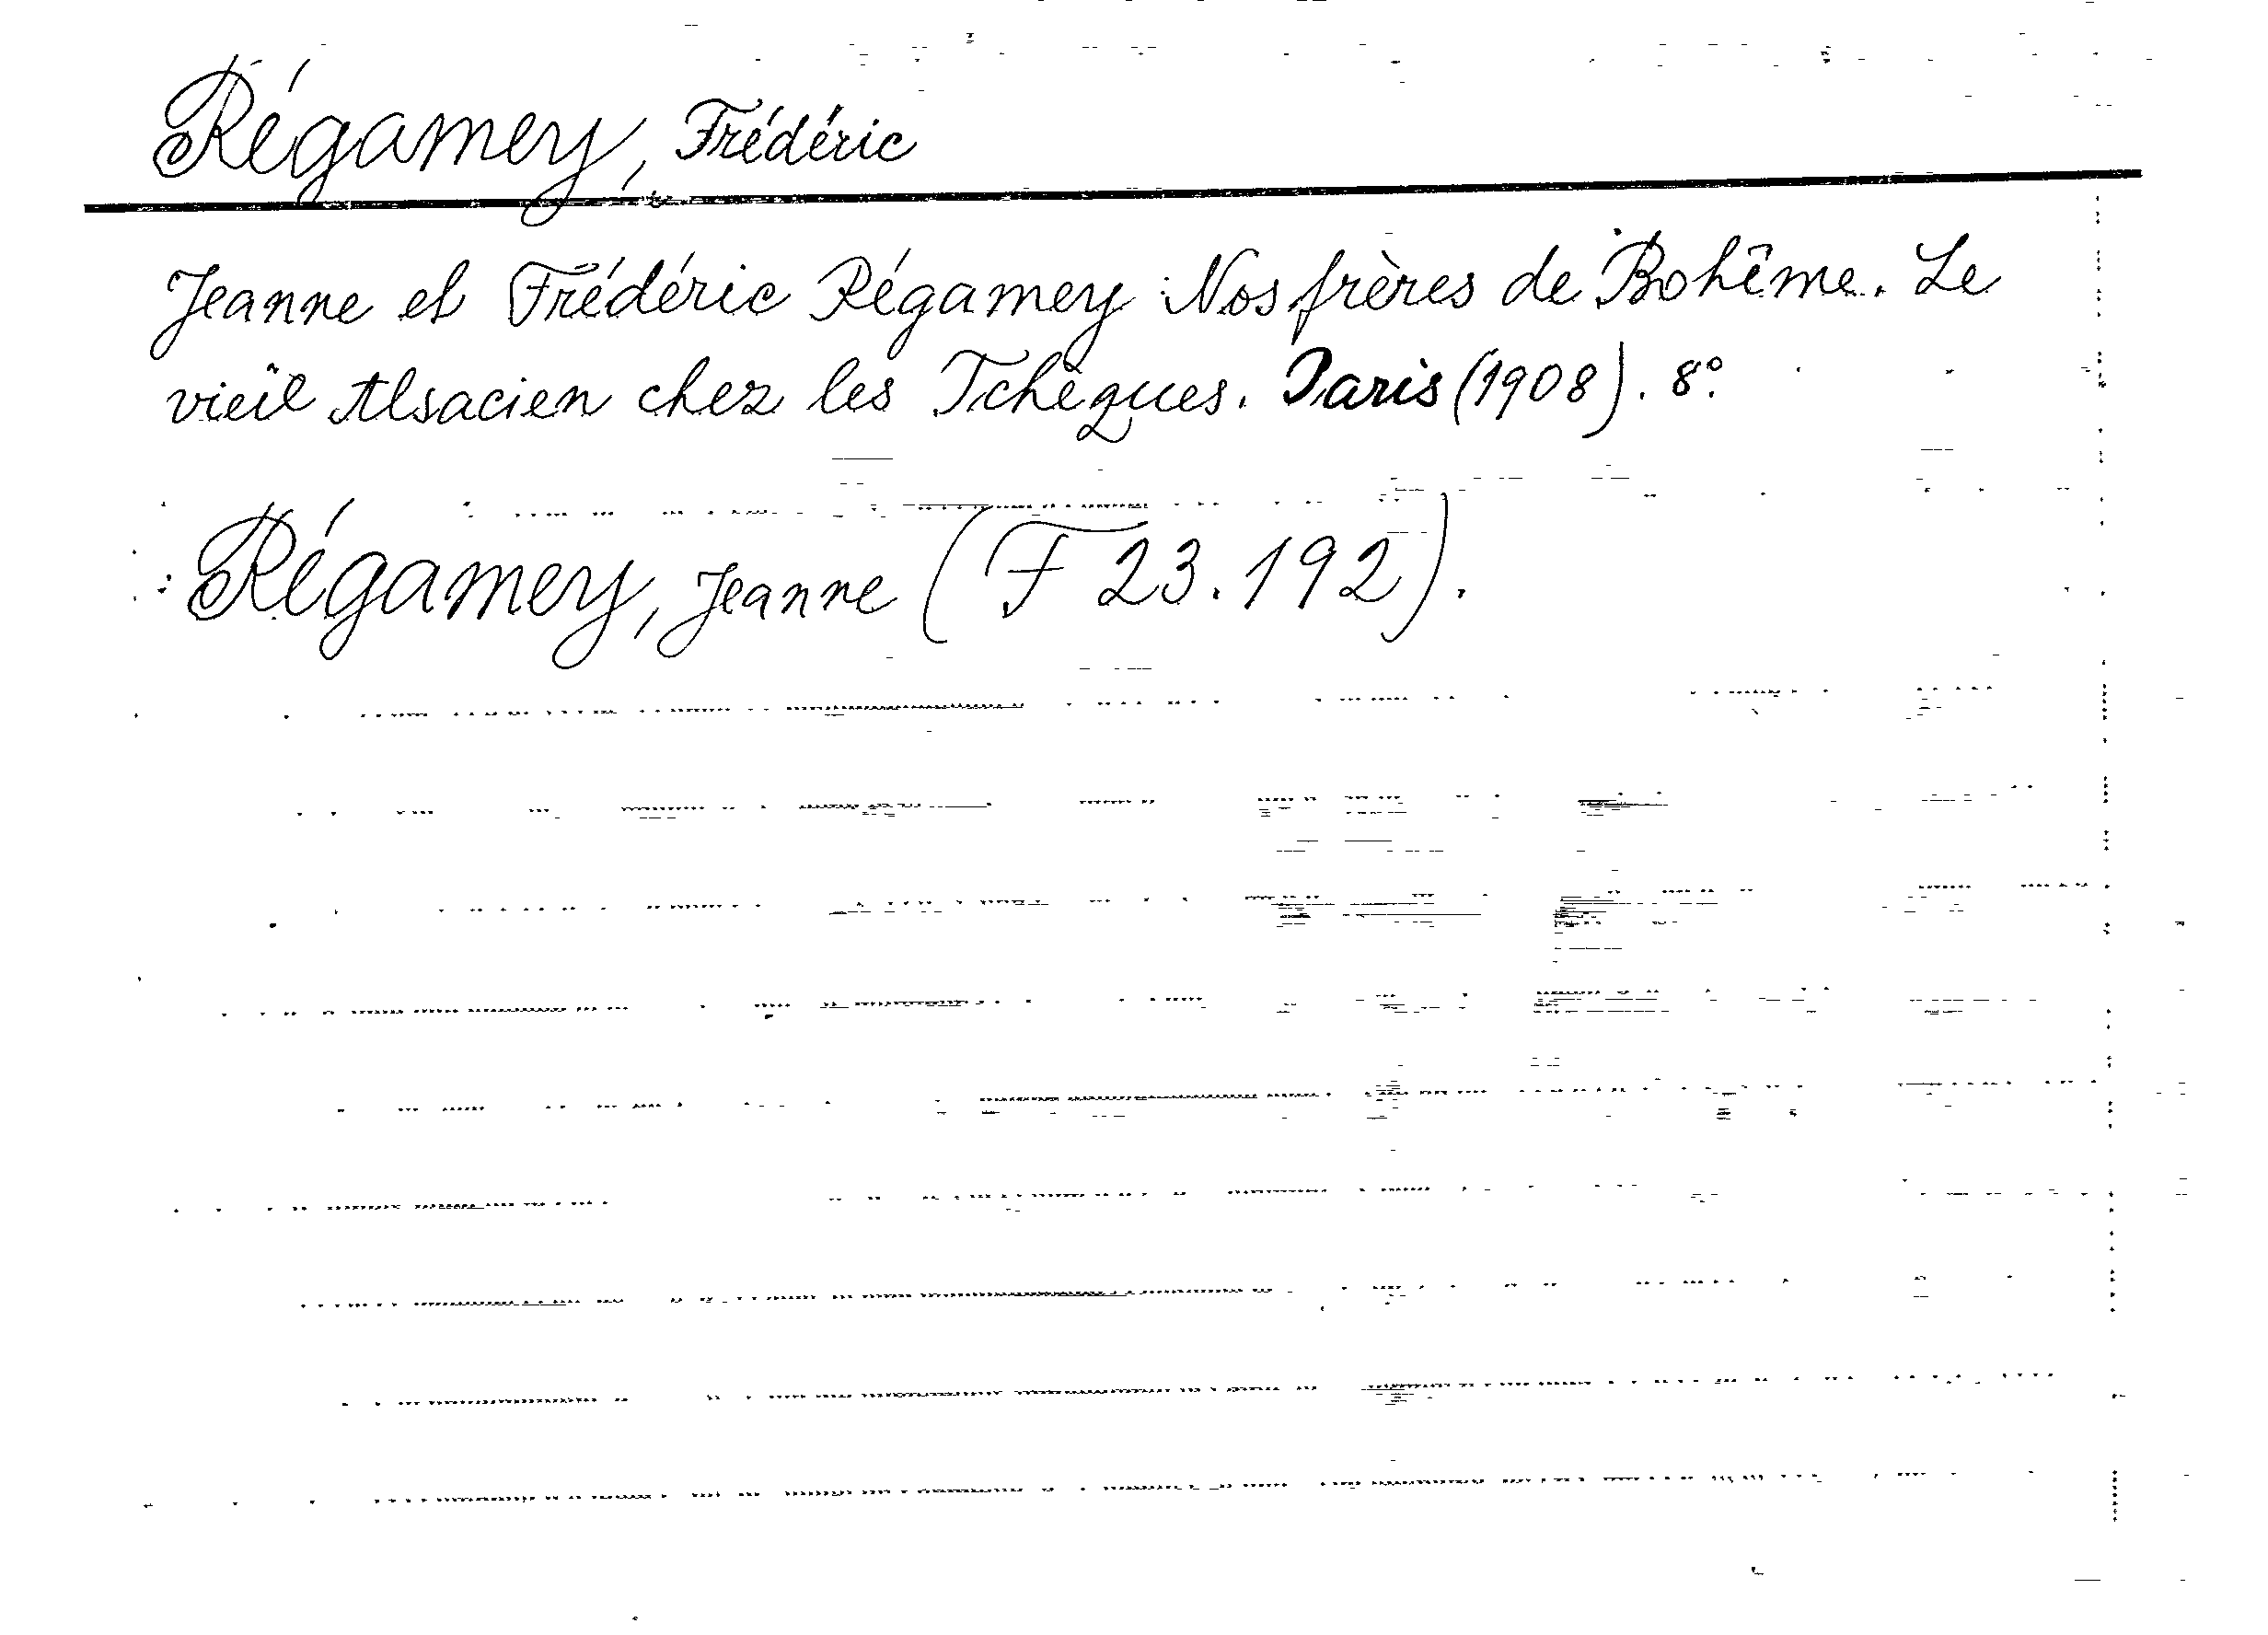 Régamey, Frédéric
Jeanne et Frédéric Régamey Nos frères de Bohême. Le
vieil Alsacien chez les Tchèques. Paris (1908). 8°.
Régamey, Jeanne (F 23.192).